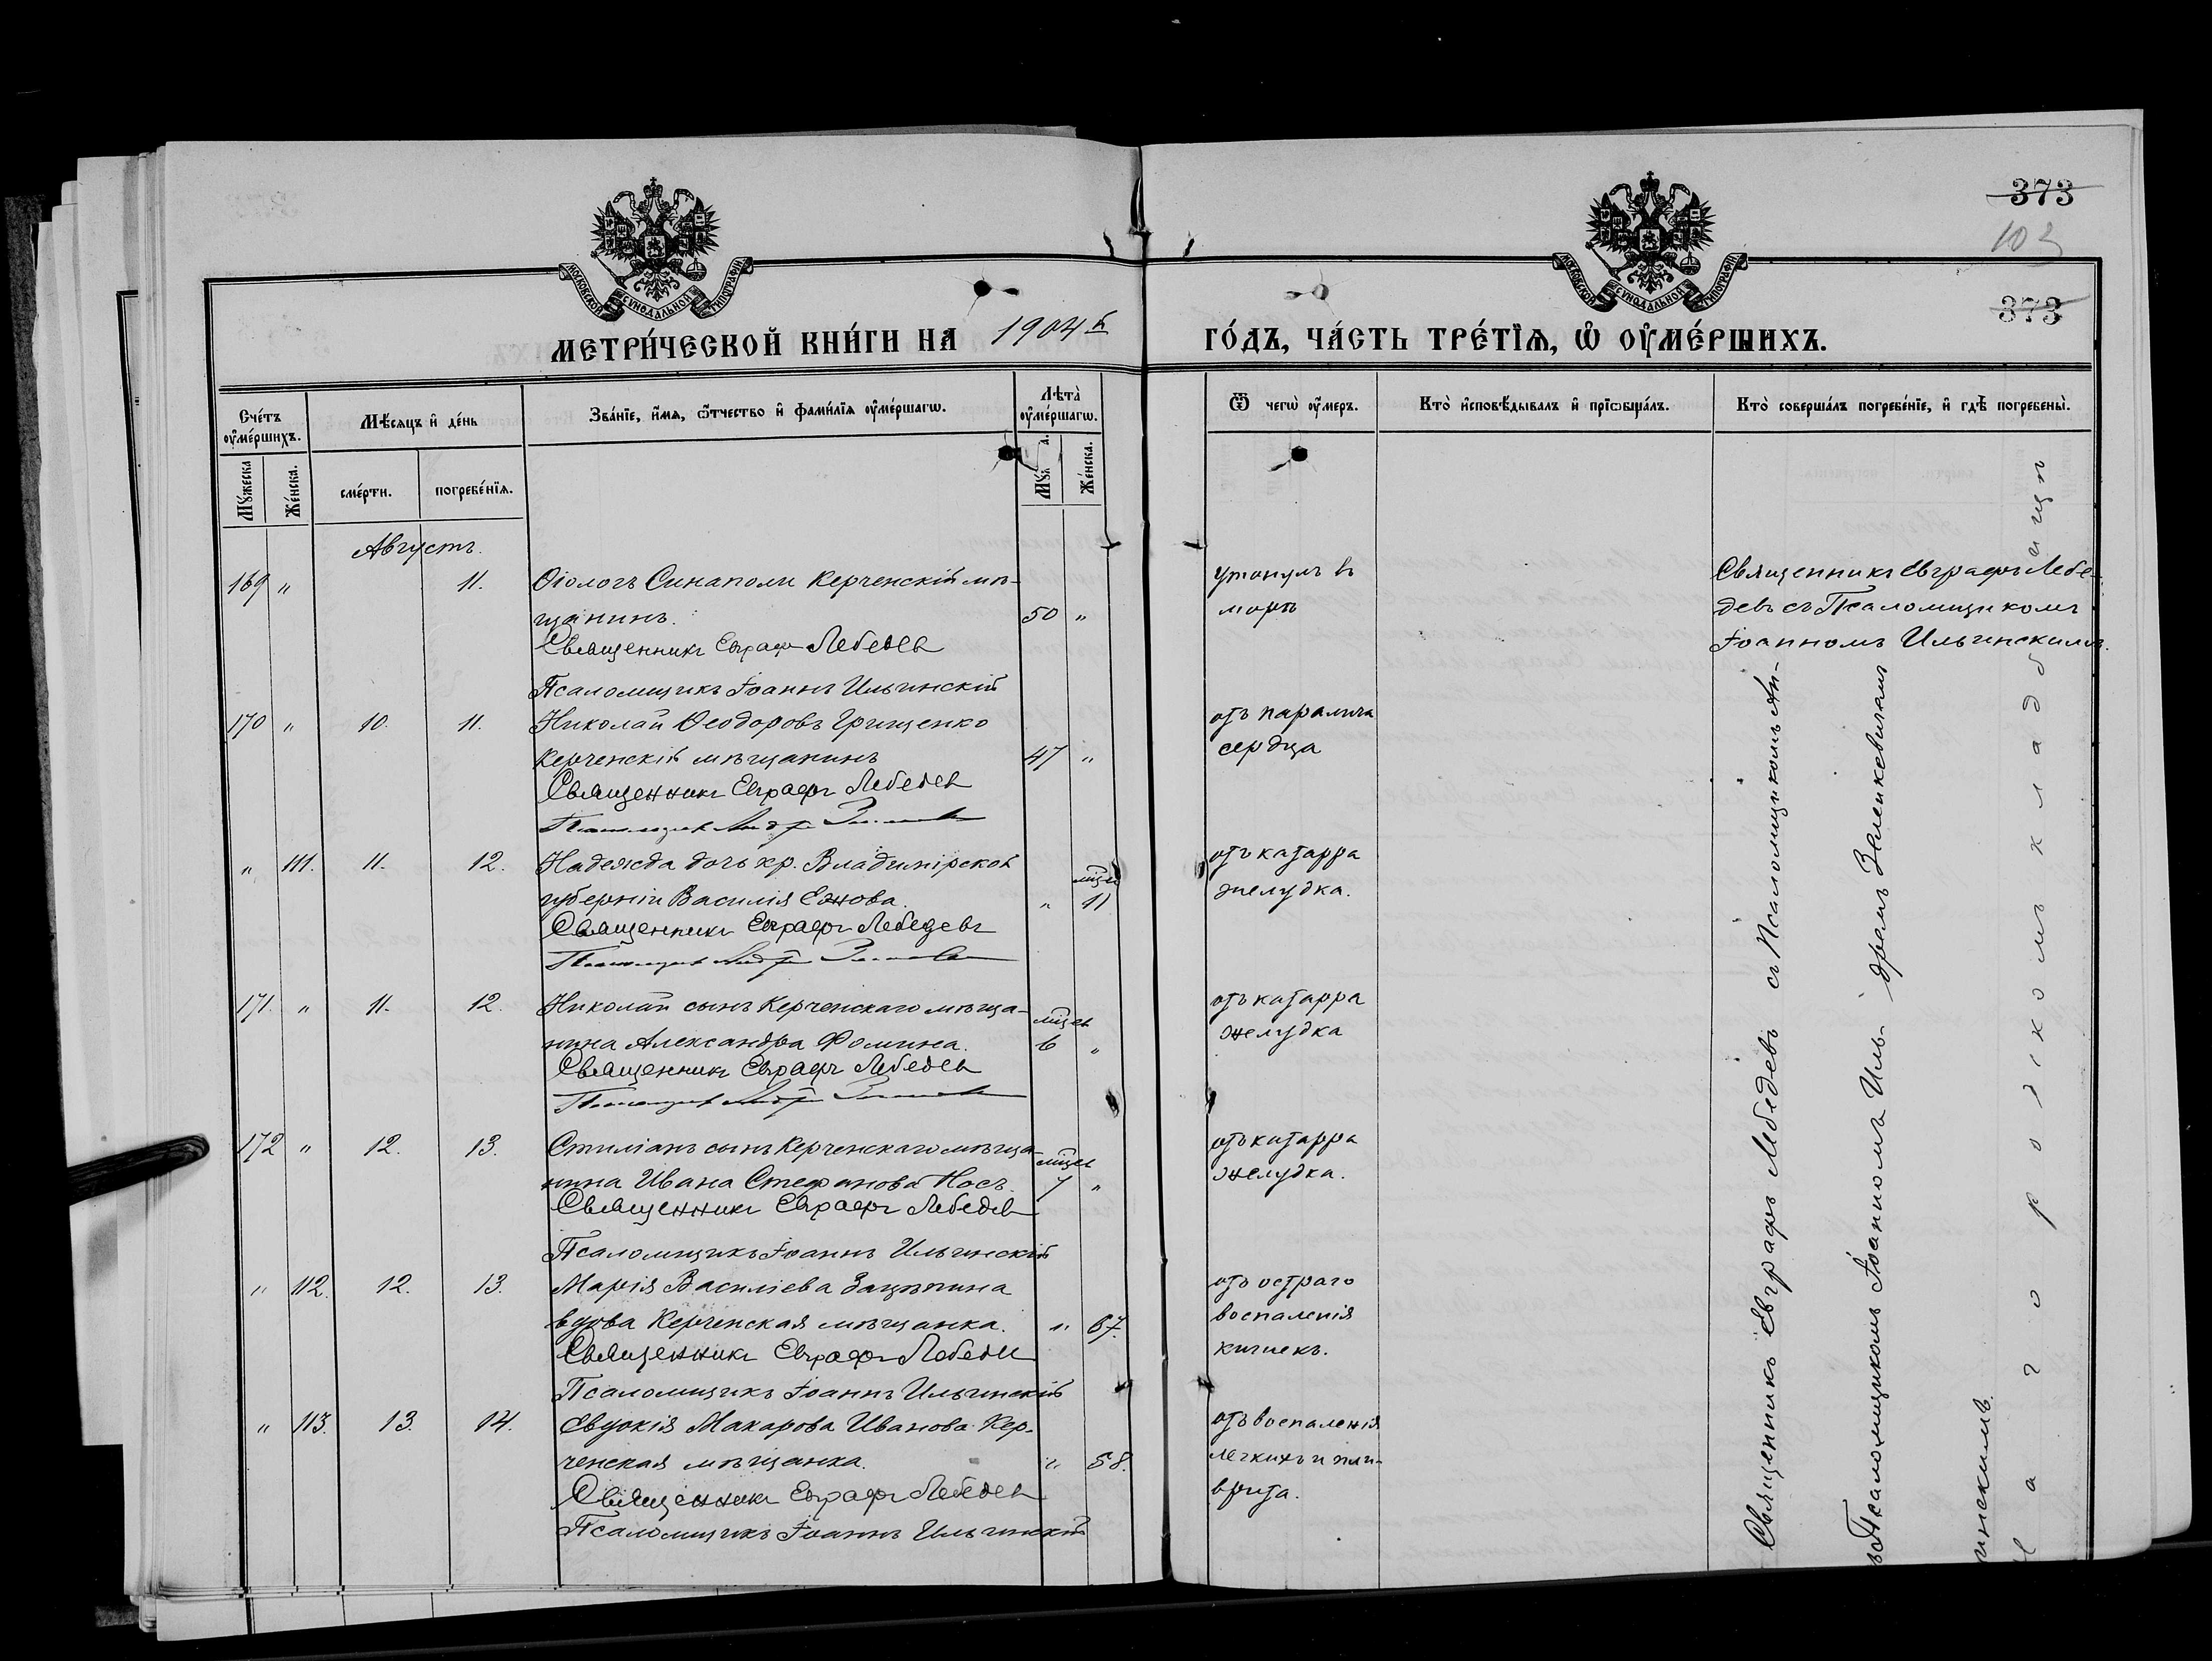 373
103
373
МОСКОВСКОЙ СУНОДАЛЬНОЙ ТИПОГРАФІИ
МОСКОВСКОЙ СУНОДАЛЬНОЙ ТИПОГРАФІИ
МЕТРИ́ЧЕСКОЙ КНИ́ГИ НА 1904й ГО́ДЪ, ЧА́СТЬ ТРЕ́ТІѦ, Ѡ ОУМЕ́РШИХЪ.
Счéтъ оумéршихъ.
Мужеска
Жéнска.
Мѣ́сяцъ и дéнь
смéрти.
погребéнїѧ.
Звáнїе, и́мѧ, ѻ́тчество и фамѝлїѧ оумéршагѡ.
Лѣта̀ оумéршагѡ.
Жéнска.
Ѿ чегѡ̀ оу́меръ.
Кто̀ исповѣ́дывалъ и прїѡбща́лъ.
Кто̀ соверша́лъ погребéнїе, и гдѣ̀ погребены̀.
Августъ.
169 " 11. Ѳіологъ Синаполи Керченскій мѣ-
щанинъ. 50 "
Священникъ Евграфъ Лебедев
Псаломщикъ Іоаннъ Ильинскій
утонулъ въ
морѣ
Священникъ Евграфъ Лебе-
девъ съ Псаломщикомъ
Іоанномъ Ильинскимъ.
170 " 10. 11. Николай Ѳеодоровъ Грищенко
Керченскій мѣщанинъ 47 "
Священникъ Евграфъ Лебедев
Псаломщик
отъ паралича
сердца
" 111. 11. 12. Надежда дочь кр. Владимірской
губерніи Василія Ежова. " мѣц 11
Священникъ Евграфъ Лебедевъ
Псаломщик
отъ катарра
желудка.
171. " 11. 12. Николай сынъ Керченскаго мѣща-
нина Александра Фомина. мѣцев 6 "
Священникъ Евграфъ Лебедев
Псаломщик
отъ катарра
желудка
172 " 12. 13. Стиліанъ сынъ Керченскаго мѣща-
нина Ивана Стефанова Носъ. мѣцев 7 "
Священникъ Евграфъ Лебедев
Псаломщикъ Іоаннъ Ильинскій
отъ катарра
желудка.
" 112. 12. 13. Марія Василіева Зацѣпина
вдова Керченская мѣщанка. " 67.
Священникъ Евграфъ Лебедев
Псаломщикъ Іоаннъ Ильинскій
отъ остраго
воспаленія
кишекъ.
" 113. 13. 14. Евдокія Макарова Иванова Кер-
ченская мѣщанка. " 58.
Священникъ Евграфъ Лебедев
Псаломщикъ Іоаннъ Ильинскій
отъ воспаленія
легкихъ и пле-
врита.
Священникъ Евграфъ Лебедевъ съ Псаломщикомъ Ан-
дреемъ Зеленкевичемъ
Псаломщикомъ Іоанномъ Иль-
инскимъ.
На городскомъ кладбищѣ